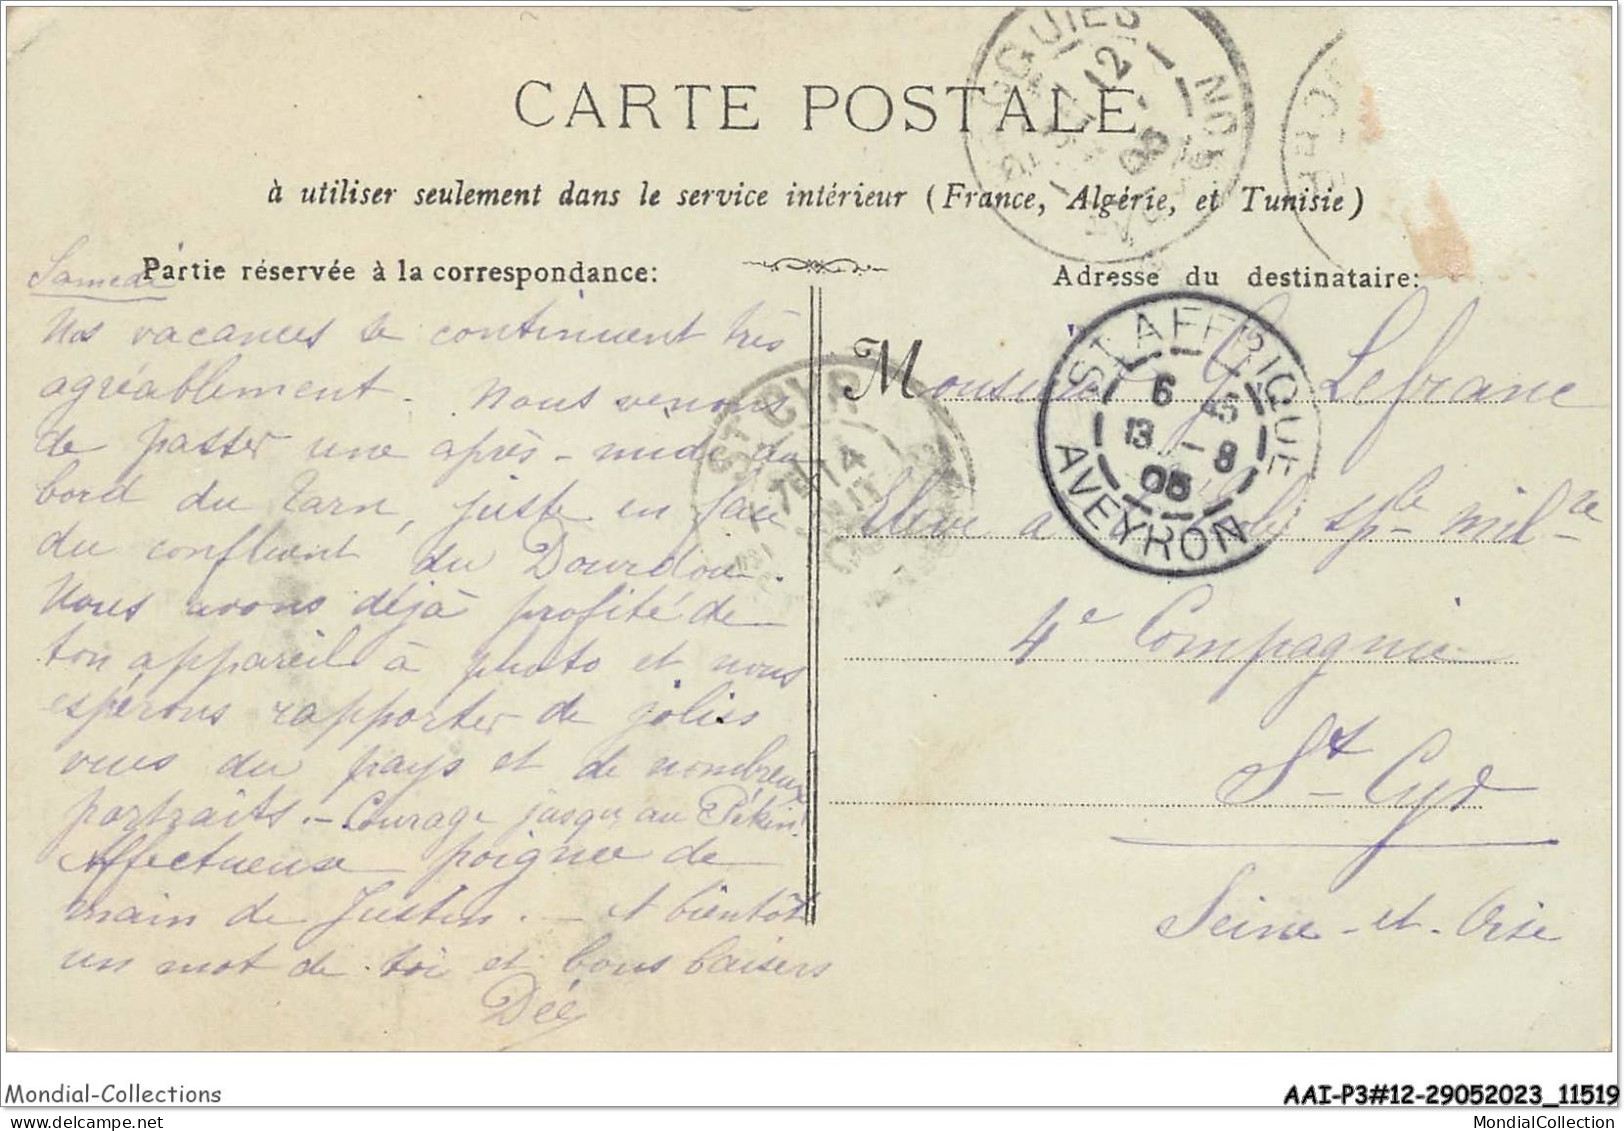 CARTE POSTALE
à utiliser seulement dans le service intérieur (France, Algérie, et Tunisie)
Partie réservée à la correspondance:
Adresse du destinataire:
Samedi
Nos vacances se continuent très
agréablement. Nous venons
de passer une après-midi au
bord du Tarn, juste en face
du confluent du Dourdou.
Nous avons déjà profité de
ton appareil à photo et nous
espérons rapporter de jolies
vues du pays et de nombreux
portraits. - Courage jusqu'au Pékin!
Affectueuse poignée de
main de Justin. - A bientôt
un mot de toi et bons baisers
Dée
Monsieur G. Lefranc
Elève à l'école sple milre
4e Compagnie
St Cyr
Seine-et-Oise
ST AFFRIQUE
6
13 -8
05
AVEYRON
ST CYR
14
12
05
Mondial-Collections
AAI-P3#12-29052023_11519
MondialCollection.com